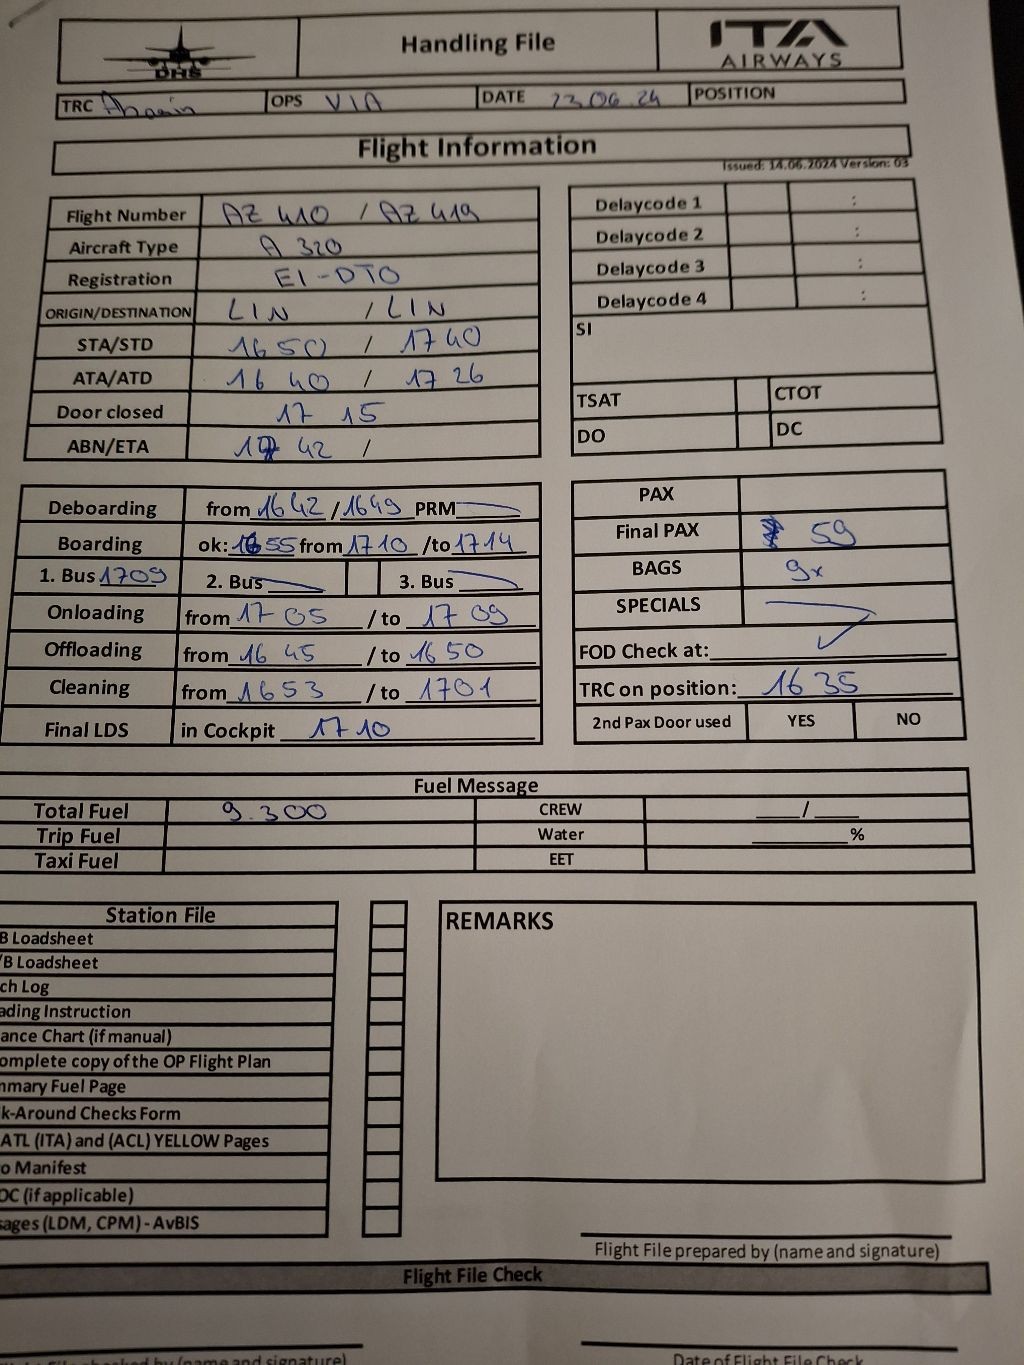 DHS
Handling File
ITA
AIRWAYS
TRC
OPS VIA
DATE 23.06.24
POSITION
Flight Information
Issued: 14.06.2024 Version: 03
Flight Number AZ 410 / AZ 419
Aircraft Type A 320
Registration EI-DTO
ORIGIN/DESTINATION LIN / LIN
STA/STD 1650 / 1740
ATA/ATD 1640 / 1726
Door closed 17 15
ABN/ETA 17 42 /
Delaycode 1 :
Delaycode 2 :
Delaycode 3 :
Delaycode 4 :
SI
TSAT CTOT
DO DC
Deboarding from 1642 / 1649 PRM
Boarding ok: 1655 from 1710 /to 1714
1. Bus 1709 2. Bus 3. Bus
Onloading from 1705 / to 1709
Offloading from 1645 / to 1650
Cleaning from 1653 / to 1701
Final LDS in Cockpit 1710
PAX
Final PAX 59
BAGS 9x
SPECIALS
FOD Check at: ✓
TRC on position: 1635
2nd Pax Door used YES NO
Fuel Message
Total Fuel 9.300 CREW ___/___
Trip Fuel Water ______%
Taxi Fuel EET
Station File
B Loadsheet
/B Loadsheet
ch Log
ading Instruction
ance Chart (if manual)
omplete copy of the OP Flight Plan
mmary Fuel Page
k-Around Checks Form
ATL (ITA) and (ACL) YELLOW Pages
o Manifest
OC (if applicable)
sages (LDM, CPM) - AvBIS
REMARKS
Flight File prepared by (name and signature)
Flight File Check
(name and signature)
Date of Flight File Check